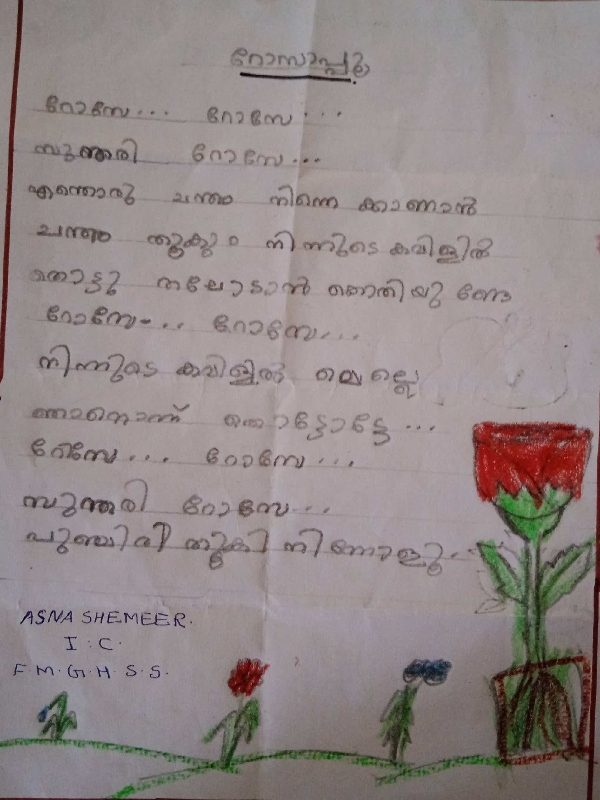 റോസാപ്പൂ
റോസേ... റോസേ...
സുന്തരി റോസേ...
എന്തൊരു ചന്തം നിന്നെ കാണാൻ
ചന്തം തൂകും നിന്നുടെ കവിളിൽ
തൊട്ടു തലോടാൻ കൊതിയു ണ്ടേ
റോസേ... റോസേ...
നിന്നുടെ കവിളിൽ മെല്ലെ
ഞാനൊന്ന് തൊട്ടോട്ടേ ...
റോസേ... റോസേ...
സുന്തരി റോസേ...
പുഞ്ചിരി തൂകി നിന്നോളൂ...
ASNA SHEMEER.
I : C.
F.M.G.H.S.S.